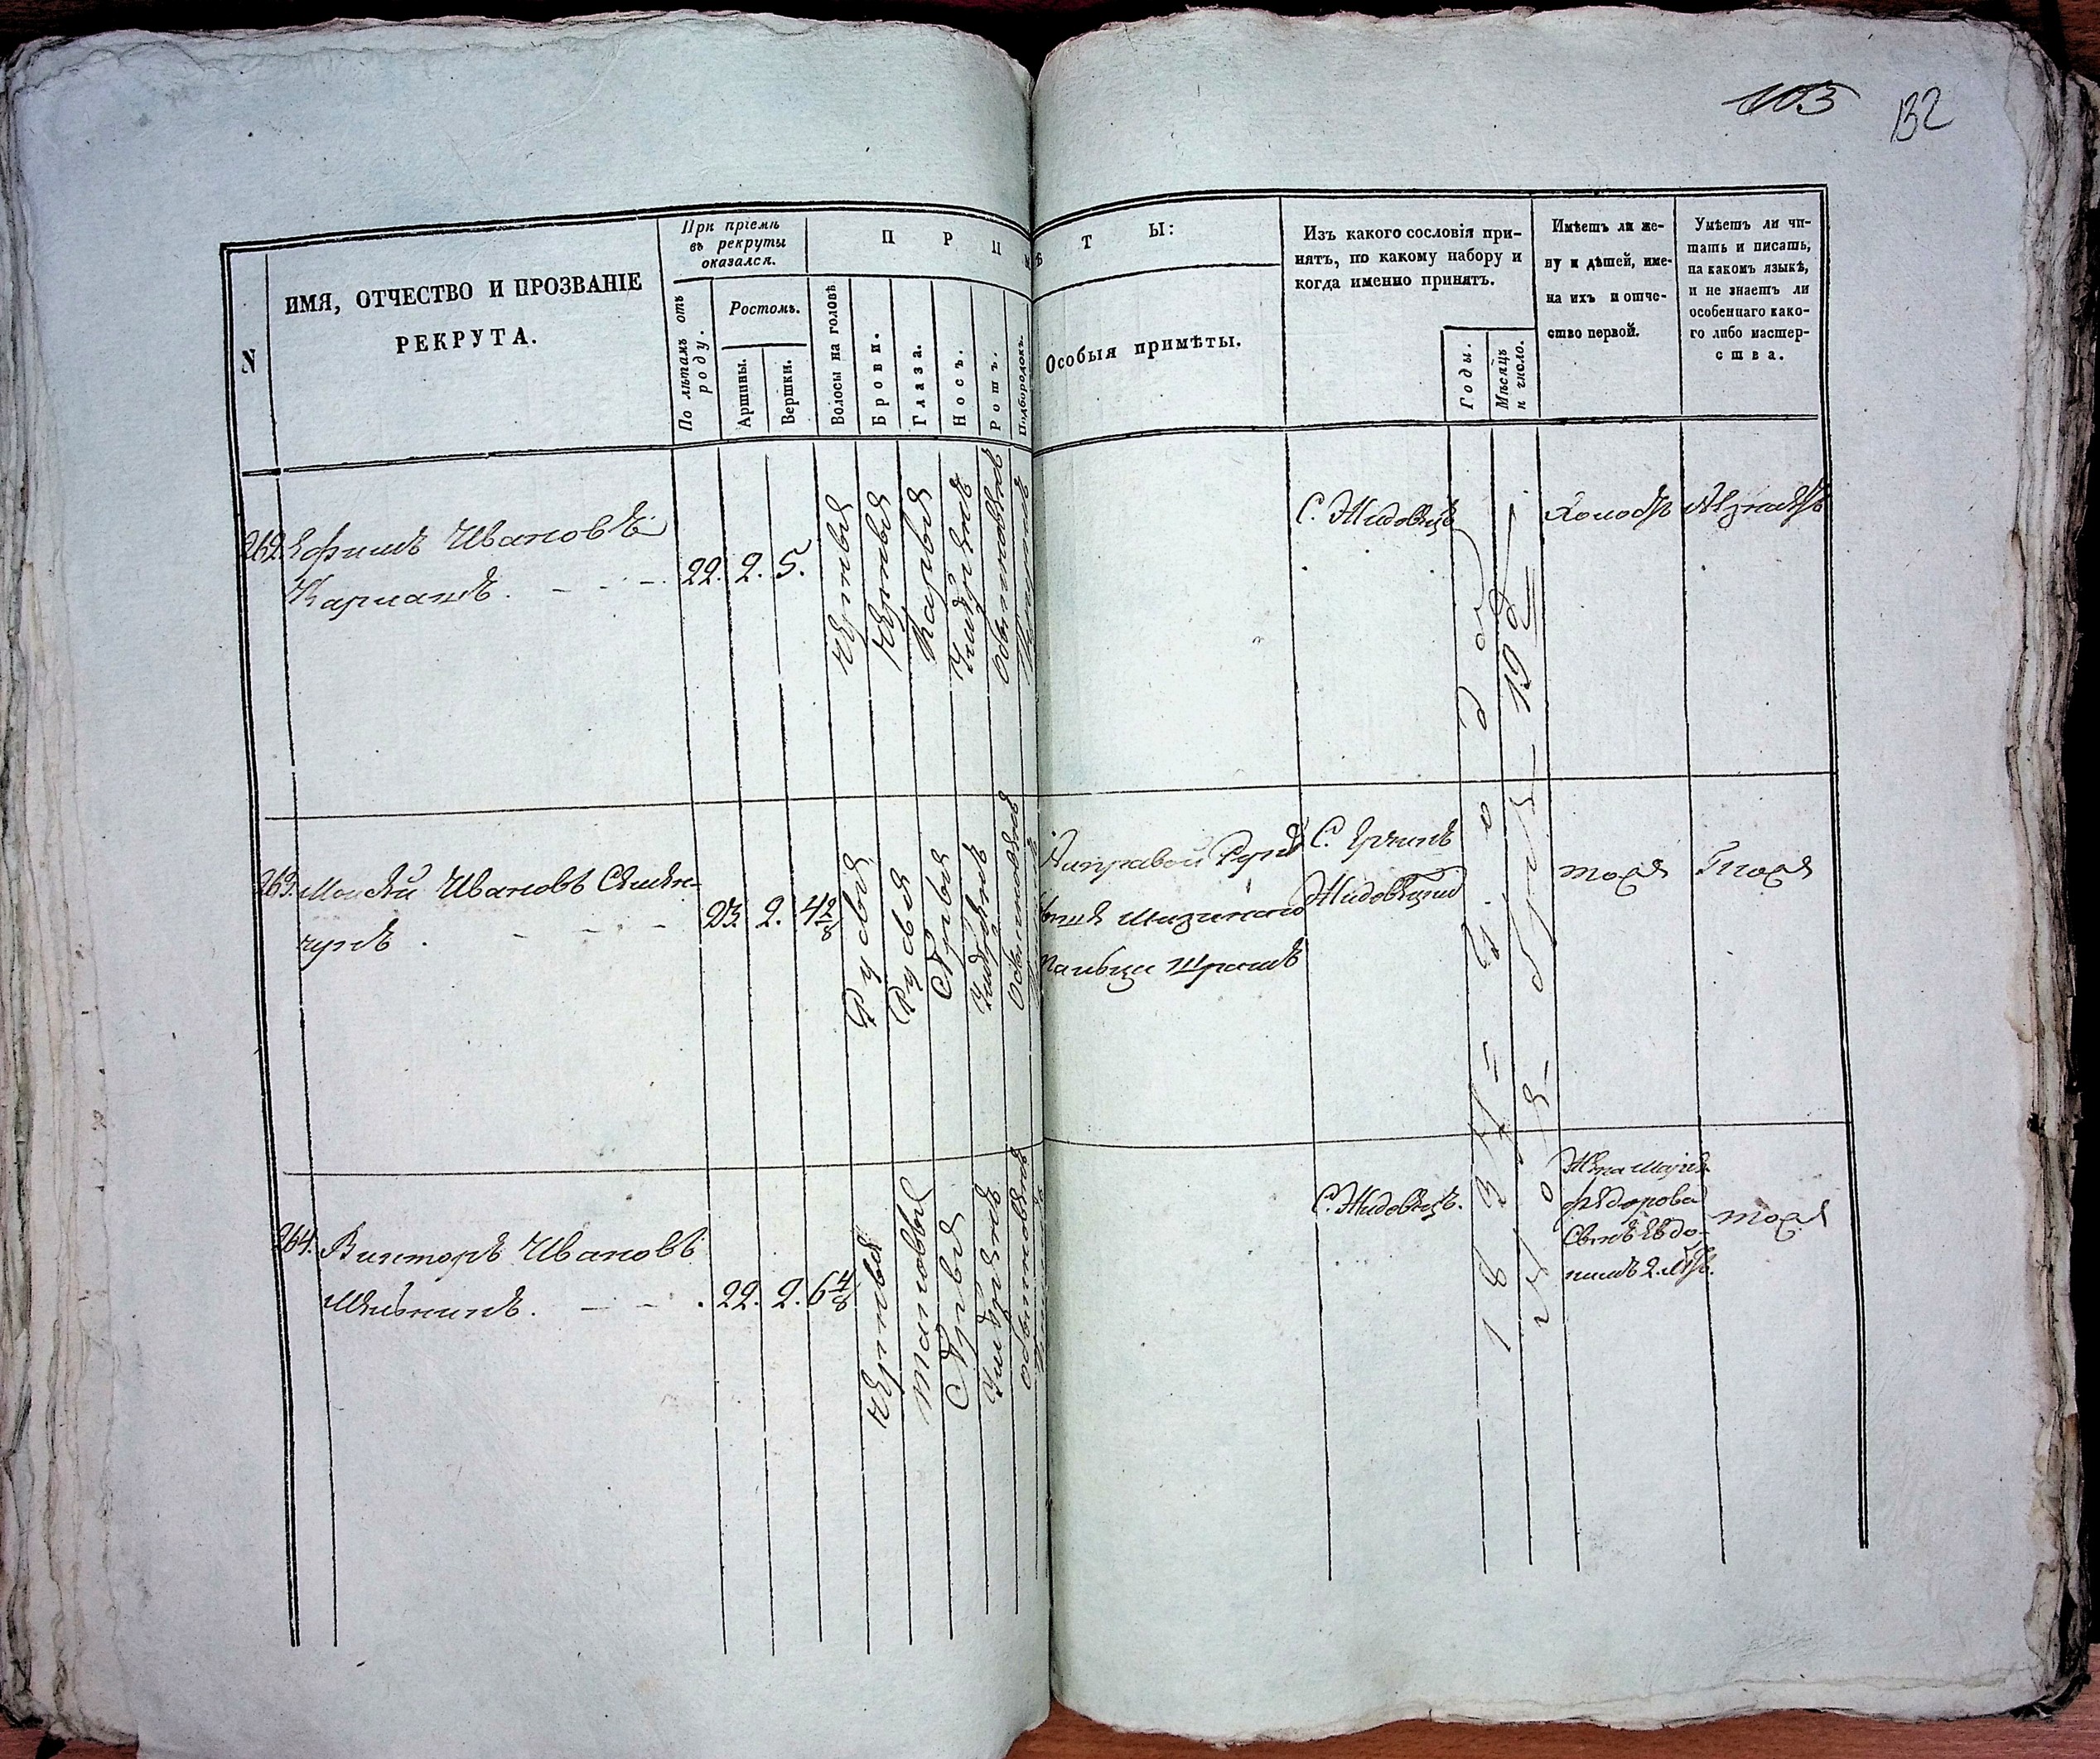 103 132
N
ИМЯ, ОТЧЕСТВО И ПРОЗВАНІЕ
РЕКРУТА.
При пріемѣ
въ рекруты
оказался.
По лѣтамъ отъ
роду.
Ростомъ.
Аршины.
Вершки.
П Р И М Ѣ Т Ы:
Волосы на головѣ
Брови.
Глаза.
Носъ.
Ротъ.
Подбородокъ.
Особыя примѣты.
Изъ какого сословія при-
нятъ, по какому набору и
когда именно принятъ.
Годы.
Мѣсяцъ
и число.
Имѣетъ ли же-
ну и дѣтей, име-
на ихъ и отче-
ство первой.
Умѣетъ ли чи-
тать и писать,
на какомъ языкѣ,
и не знаетъ ли
особеннаго како-
го либо мастер-
ства.
262. Ефимъ Ивановъ
22. 2. 5.
Черныя
Черныя
Карыя
Умѣренъ
Обыкновенъ
С. Жидовецъ
Холостъ
Незнаетъ
263. Мойсей Ивановъ Семен-
чукъ
23. 2. 4 2/8
Русыя
Русыя
Сѣрыя
Умѣренъ
Обыкновенъ
Направой Рукѣ
мизинаго
пальца шрамъ
С.
тоже
Тоже
264. Викторъ Ивановъ
Мельникъ.
22. 2. 6 4/8
Черныя
таковыя
Сѣрыя
Умѣренъ
обыкновенъ
С. Жидовецъ.
183
года
19
Жена
Федорова
Сынъ Евдо-
кимъ 2. лѣтъ.
тоже